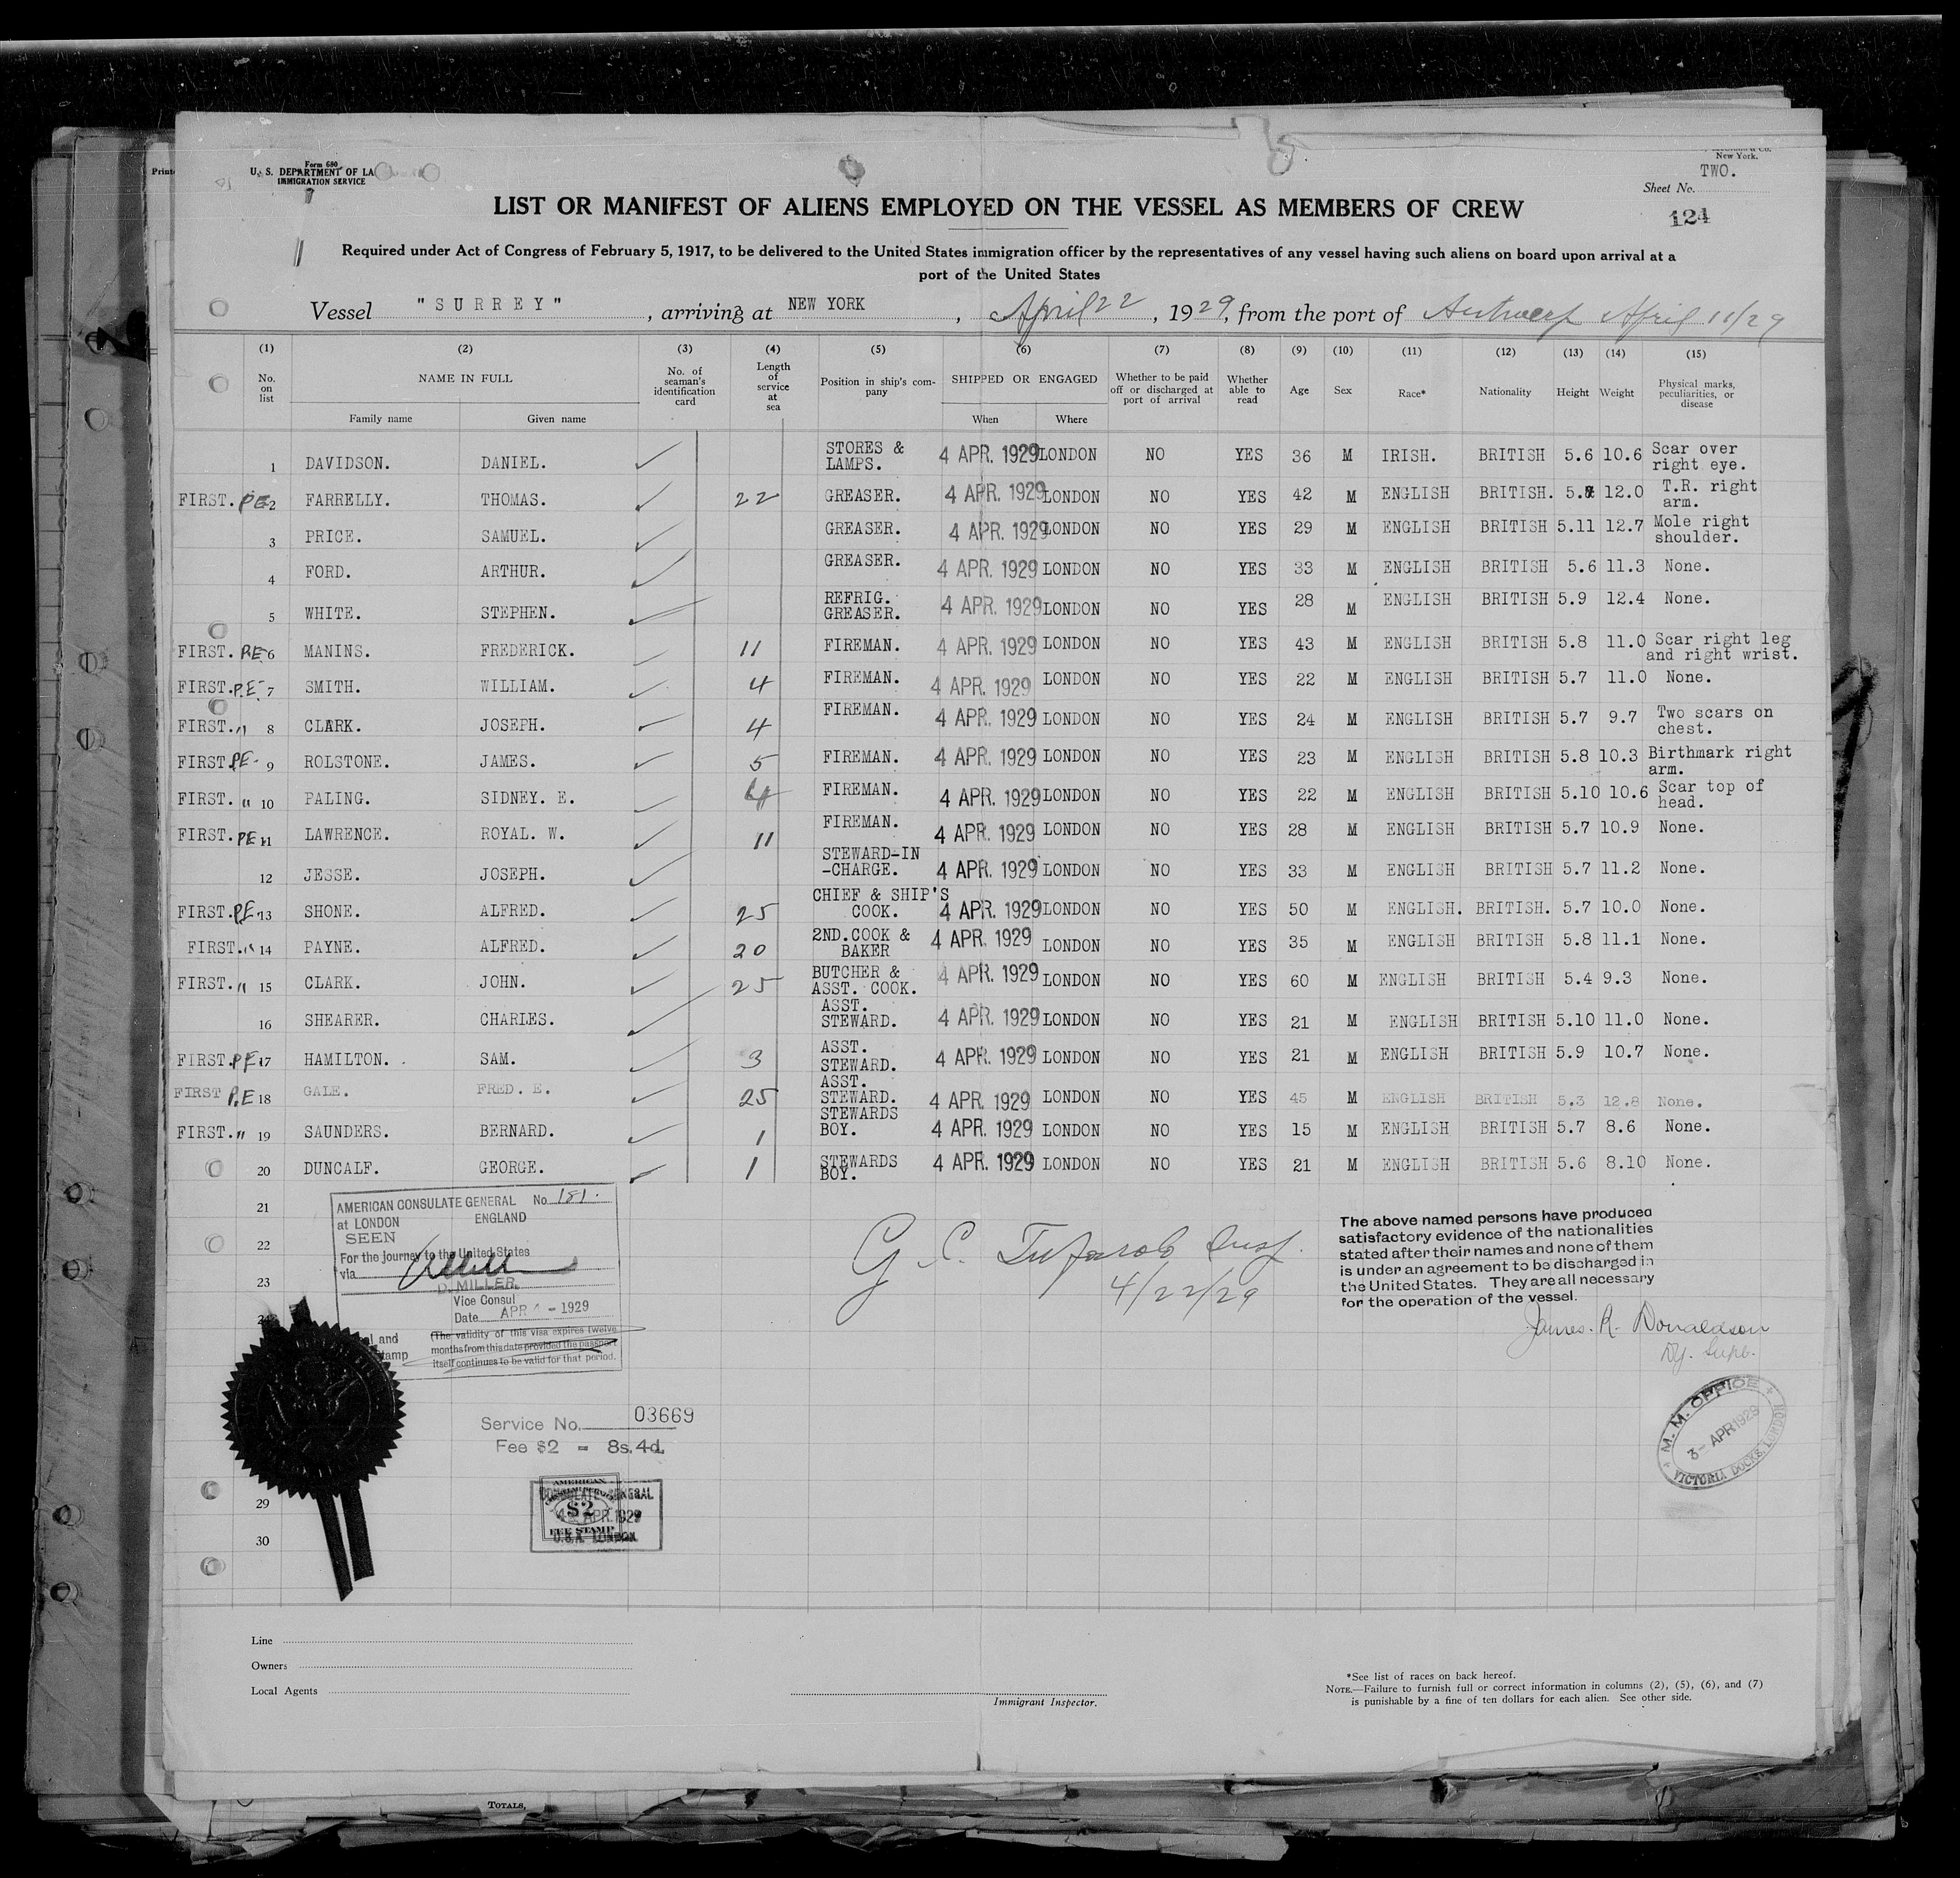 Form 680
U. S. DEPARTMENT OF LA
IMMIGRATION SERVICE
New York.
TWO.
Sheet No.
124
LIST OR MANIFEST OF ALIENS EMPLOYED ON THE VESSEL AS MEMBERS OF CREW
Required under Act of Congress of February 5, 1917, to be delivered to the United States immigration officer by the representatives of any vessel having such aliens on board upon arrival at a
port of the United States
Vessel "SURREY", arriving at NEW YORK, April 22, 1929, from the port of Antwerp April 11/29
(1) (2) (3) (4) (5) (6) (7) (8) (9) (10) (11) (12) (13) (14) (15)
No. on list NAME IN FULL Family name Given name No. of seaman's identification card Length of service at sea Position in ship's company SHIPPED OR ENGAGED When Where Whether to be paid off or discharged at port of arrival Whether able to read Age Sex Race* Nationality Height Weight Physical marks, peculiarities, or disease
1 DAVIDSON. DANIEL. STORES & LAMPS. 4 APR. 1929 LONDON NO YES 36 M IRISH. BRITISH 5.6 10.6 Scar over right eye.
FIRST. PE 2 FARRELLY. THOMAS. 22 GREASER. 4 APR. 1929 LONDON NO YES 42 M ENGLISH BRITISH. 12.0 T.R. right arm.
3 PRICE. SAMUEL. GREASER. 4 APR. 1929 LONDON NO YES 29 M ENGLISH BRITISH 5.11 12.7 Mole right shoulder.
4 FORD. ARTHUR. GREASER. 4 APR. 1929 LONDON NO YES 33 M ENGLISH BRITISH 5.6 11.3 None.
5 WHITE. STEPHEN. REFRIG. GREASER. 4 APR. 1929 LONDON NO YES 28 M ENGLISH BRITISH 5.9 12.4 None.
FIRST. PE 6 MANINS. FREDERICK. 11 FIREMAN. 4 APR. 1929 LONDON NO YES 43 M ENGLISH BRITISH 5.8 11.0 Scar right leg and right wrist.
FIRST. P.E 7 SMITH. WILLIAM. 4 FIREMAN. 4 APR. 1929 LONDON NO YES 22 M ENGLISH BRITISH 5.7 11.0 None.
FIRST. " 8 CLARK. JOSEPH. 4 FIREMAN. 4 APR. 1929 LONDON NO YES 24 M ENGLISH BRITISH 5.7 9.7 Two scars on chest.
FIRST PE 9 ROLSTONE. JAMES. 5 FIREMAN. 4 APR. 1929 LONDON NO YES 23 M ENGLISH BRITISH 5.8 10.3 Birthmark right arm.
FIRST. " 10 PALING. SIDNEY. E. 4 FIREMAN. 4 APR. 1929 LONDON NO YES 22 M ENGLISH BRITISH 5.10 10.6 Scar top of head.
FIRST. PE 11 LAWRENCE. ROYAL. W. 11 FIREMAN. 4 APR. 1929 LONDON NO YES 28 M ENGLISH BRITISH 5.7 10.9 None.
12 JESSE. JOSEPH. STEWARD-IN -CHARGE. 4 APR. 1929 LONDON NO YES 33 M ENGLISH BRITISH 5.7 11.2 None.
FIRST. P.E. 13 SHONE. ALFRED. 25 CHIEF & SHIP'S COOK. 4 APR. 1929 LONDON NO YES 50 M ENGLISH. BRITISH. 5.7 10.0 None.
FIRST. " 14 PAYNE. ALFRED. 20 2ND. COOK & BAKER 4 APR. 1929 LONDON NO YES 35 M ENGLISH BRITISH 5.8 11.1 None.
FIRST. " 15 CLARK. JOHN. 25 BUTCHER & ASST. COOK. 4 APR. 1929 LONDON NO YES 60 M ENGLISH BRITISH 5.4 9.3 None.
16 SHEARER. CHARLES. ASST. STEWARD. 4 APR. 1929 LONDON NO YES 21 M ENGLISH BRITISH 5.10 11.0 None.
FIRST. PE 17 HAMILTON. SAM. 3 ASST. STEWARD. 4 APR. 1929 LONDON NO YES 21 M ENGLISH BRITISH 5.9 10.7 None.
FIRST P.E 18 GALE. FRED. E. 25 ASST. STEWARD. 4 APR. 1929 LONDON NO YES 45 M ENGLISH BRITISH 5.3 12.8 None.
FIRST. " 19 SAUNDERS. BERNARD. 1 STEWARDS BOY. 4 APR. 1929 LONDON NO YES 15 M ENGLISH BRITISH 5.7 8.6 None.
20 DUNCALF. GEORGE. 1 STEWARDS BOY. 4 APR. 1929 LONDON NO YES 21 M ENGLISH BRITISH 5.6 8.10 None.
21
22
23
29
30
AMERICAN CONSULATE GENERAL No 181.
at LONDON ENGLAND
SEEN
For the journey to the United States
via
D. MILLER.
Vice Consul
Date APR 4 - 1929
(The validity of this visa expires twelve
months from this date provided the passport
itself continues to be valid for that period.
Service No. 03669
Fee $2 = 8s. 4d.
AMERICAN
CONSULATE GENERAL
$2
4 APR. 1929
FEE STAMP
U.S.A. LONDON
4/22/29
The above named persons have produced
satisfactory evidence of the nationalities
stated after their names and none of them
is under an agreement to be discharged in
the United States. They are all necessary
for the operation of the vessel.
James. R. Donaldson
Dy. Supt.
M. M. OFFICE
3 - APR 1929
VICTORIA DOCKS, LONDON
Line
Owners
Local Agents
Immigrant Inspector.
*See list of races on back hereof.
NOTE.—Failure to furnish full or correct information in columns (2), (5), (6), and (7)
is punishable by a fine of ten dollars for each alien. See other side.
TOTALS,